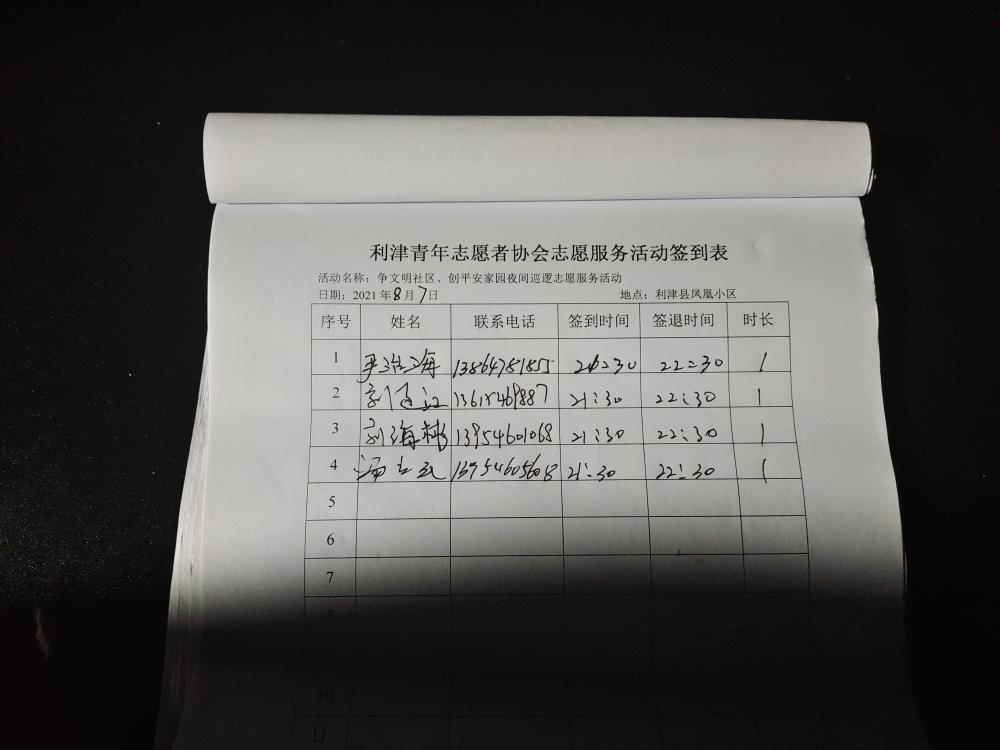 利津青年志愿者协会志愿服务活动签到表
活动名称：争文明社区、创平安家园夜间巡逻志愿服务活动
日期：2021年8月7日 地点：利津县凤凰小区
序号 姓名 联系电话 签到时间 签退时间 时长
1 海 13864781855 22:30 1
2 刘 22:30 21:30 1
3 刘海彬 13954601068 21:30 22:30 1
4 13954605608 21:30 22:30 1
5
6
7
8
10
11